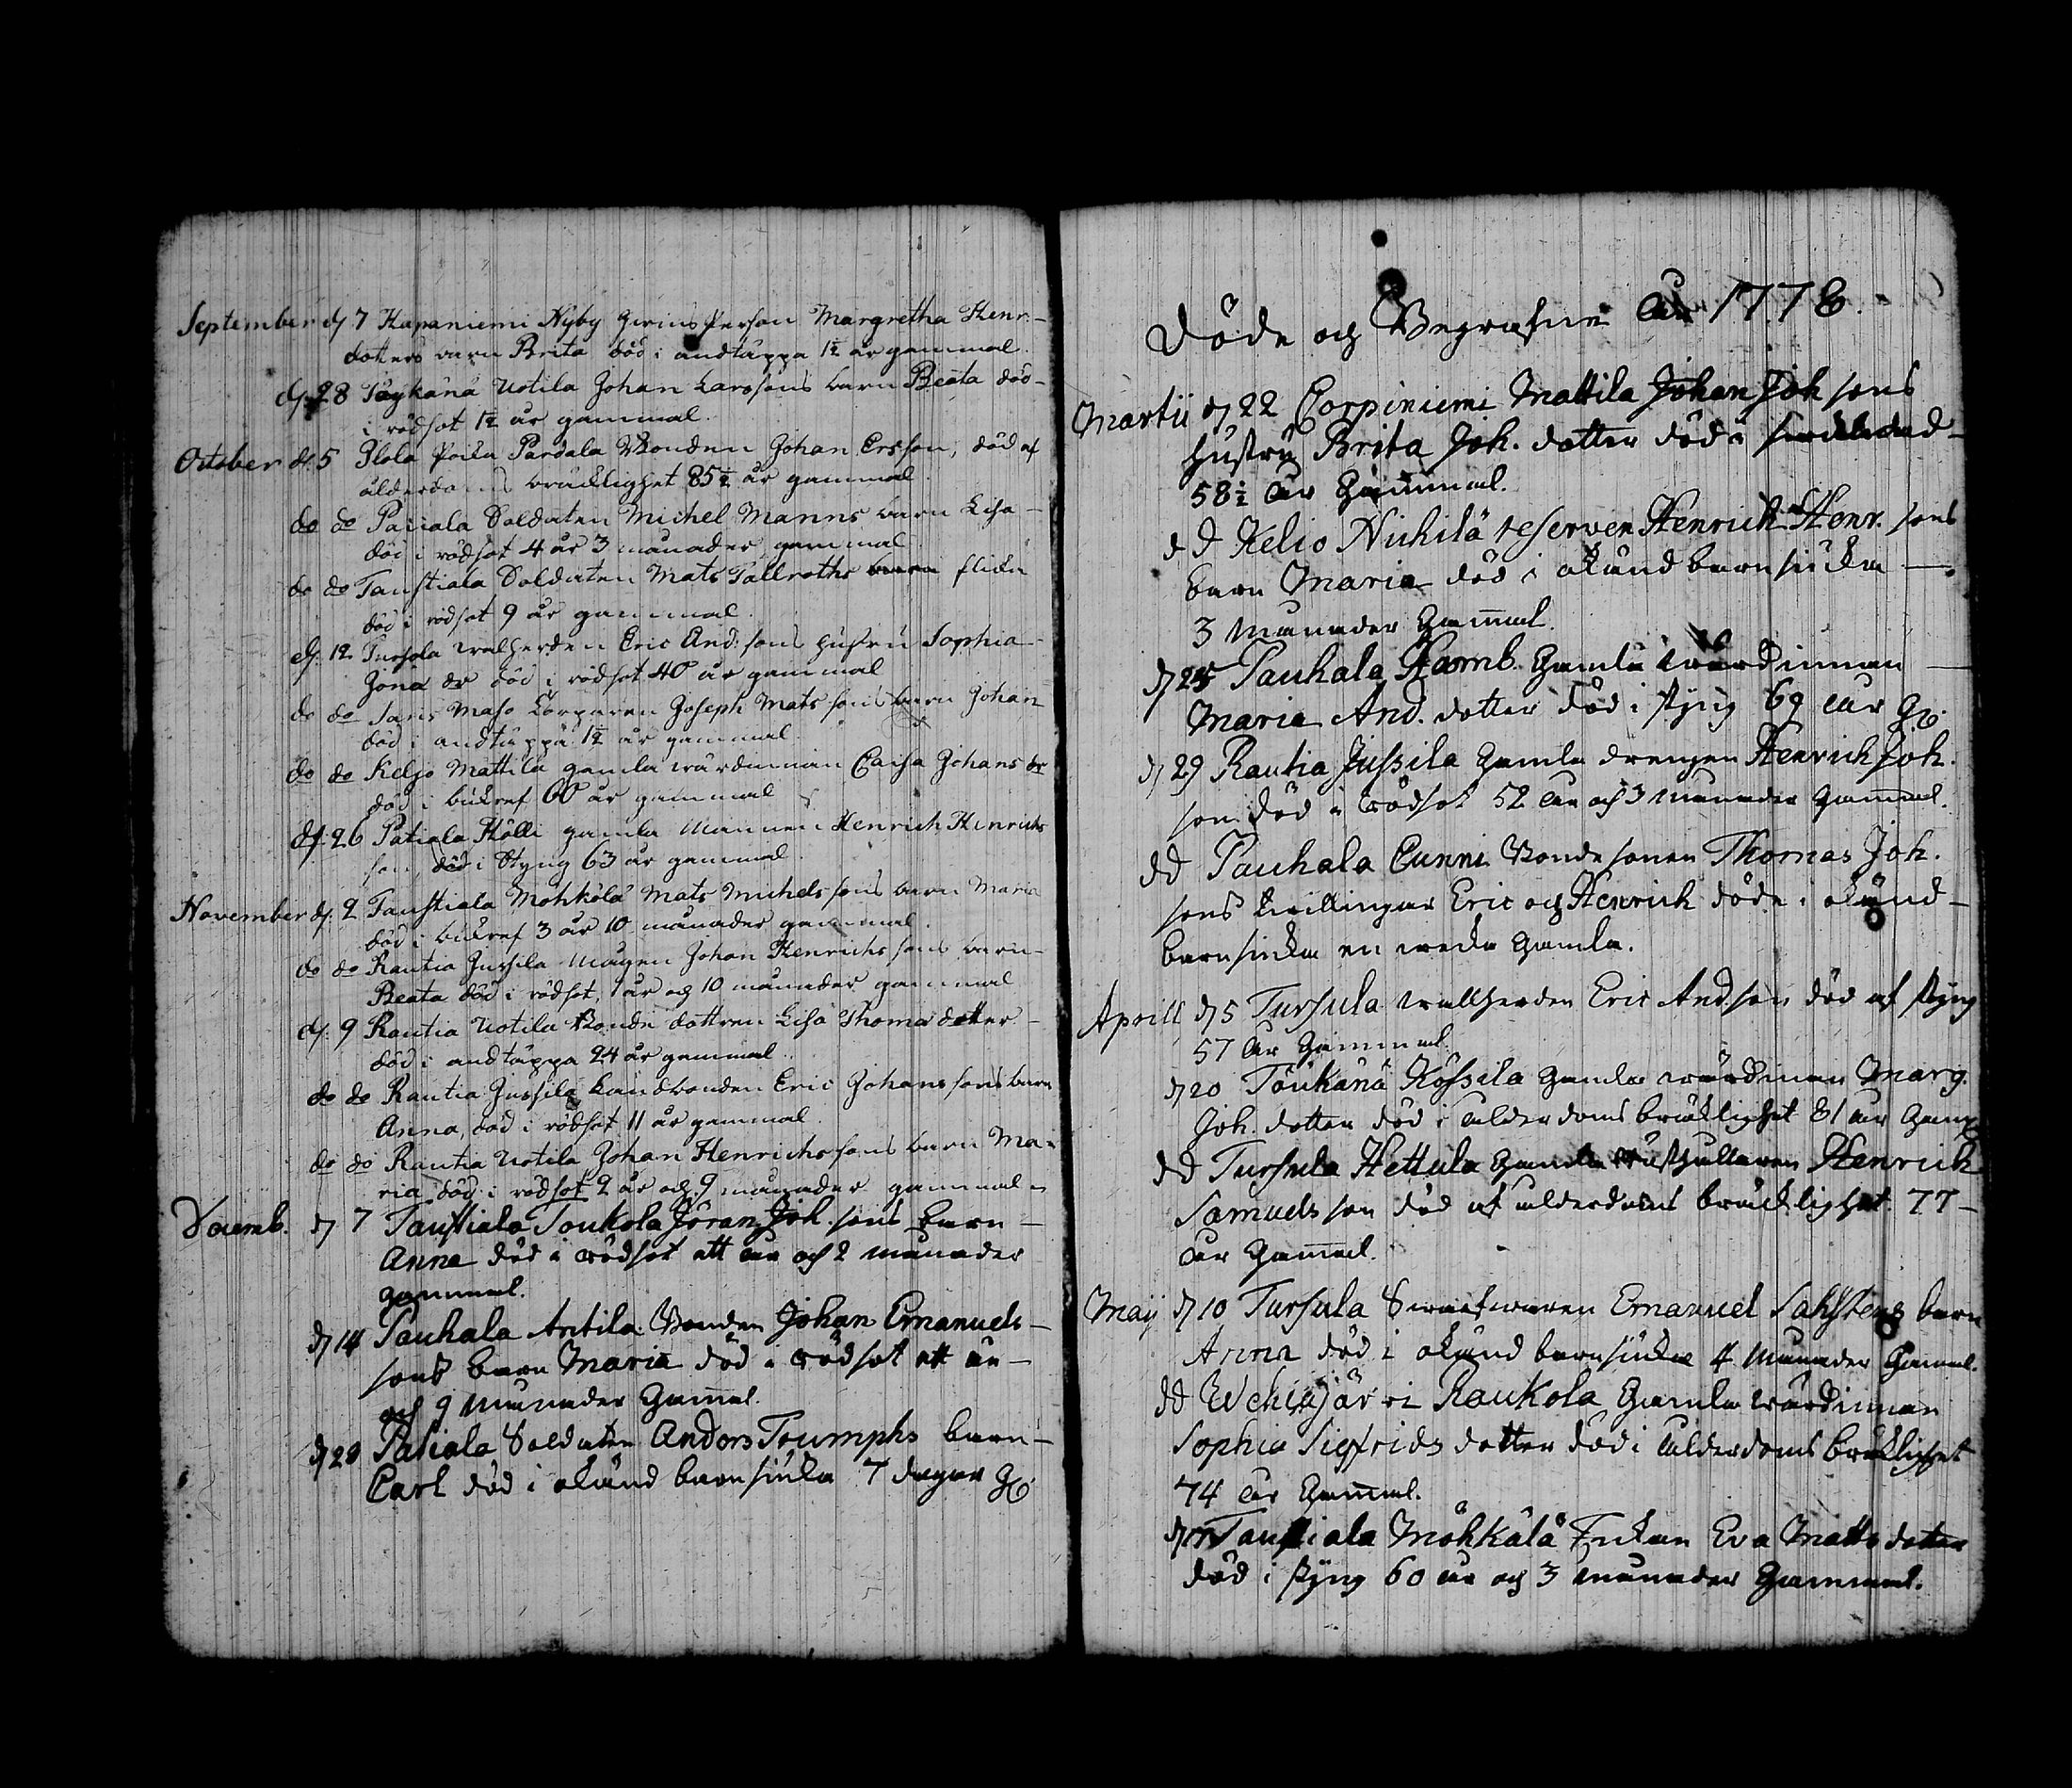 September dj 7 Hapaniemi Nyby Person Margretha Henr.-
dotters barn Brita död i andtäppa 1½ år gammal.
dj. 28 Töykänä Uotila Johan Larssons barn Beata död-
i rödsot 1½ år gammal.
October dj. 5 Plola Pardala Bonden Johan Ersson, död af
ålderdoms bräcklighet 85½ år gammal
do do Patiala Soldaten Michel Manns barn Lisa-
död i rödsot 4 år 3 månader gammal
do do Taustiala Soldaten Mats Tallroths flicka
död i rödsot 9 år gammal.
dj. 12 Tursola wallherden Eric And:sons hustru Sophia-
Göra dr död i rödsot 40 år gammal
do do Maso Torparen Joseph Mats sons barn Johan
död i andtäppa 1½ år gammal.
do do Keljo Mattila gamla wärdinnan Caisa Johans dr
död i bukref 60 år gammal
dj. 26 Patiala Hölli gamla Mannen Henrich Henrichs
son död i Styng 63 år gammal.
November dj. 2 Taustiala Mohkölä Mats Michelssons barn Maria
död i bukref 3 år 10 månader gammal.
do do Rautia Jussila Mågen Johan Henrichs sons barn-
Beata död i rödsot, 1 år och 10 månader gammal
dj. 9 Rautia Uotila Bonde dottren Lisa Thomædotter-
död i andtäppa 24 år gammal.
do do Rautia Jussila Landbonden Eric Johanssons barn
Anna, död i rödsot 11 år gammal.
do do Rautia Uotila Johan Henrichssons barn Ma=
ria död i rödsot 2 år och 9 månader gammal
Decemb. dj 7 Taustiala Toukola Jöran Joh. sons barn-
Anna död i rödsot ett år och 2 månader
gammal.
dj 14 Pauhala Antila Bonden Johan Emanuels-
sons barn Maria död i rödsot ett år-
och 9 månader Gammal.
dj 28 Patiala Soldaten Anders Triumphs barn-
Carl död i okänd barnsjuka 7 dagar G.
Döde och Begrafne År 1778.
Martii dj 22 Corpiniemi Mattila Johan Joh sons
hustru Brita Joh. dotter död i
58½ år Gammal.
dd Kelio Nichilä reserven Henrich Henr. sons
barn Maria död i okänd barnsjuka
3 Månader Gammal.
dj 25 Pauhala Ramb. Gamla wärdinnan
Maria And. dotter död i styng 69 år G.
dj 29 Rautia Jussila gamla drengen Henrich Joh.
son död i rödsot 52 år och 3 månader Gammal.
dd Pauhala Cunni Bondesonen Thomas Joh.
sons twillingar Eric och Henrich döde i okänd-
barnsjuka en wecka Gamla.
Aprill dj 5 Tursula wallherden Eric And.son död af styng
57 år Gammal.
dj 20 Töukänä Kössila Gamla wärdinnan Marg.
Joh. dotter död i ålderdoms bräcklighet 81 år Gam
dd Tursula Hettula Gamla Rusthållaren Henrich
Samuels son död af ålderdoms bräcklighet 77-
år Gammal.
Maij dj 10 Tursula Emanuel Sahlstens barn
Anna död i okänd barnsjuka 4 Månader Gammal.
dd Wehkajärvi Raukola Gamla wärdinnan
Sophia Sigfrids dotter död i ålderdoms bräcklighet
74 år Gammal.
dj 17 Taustiala Möhkälä Enkan Eva Matts dotter
död i styng 60 år och 3 månader Gammal.